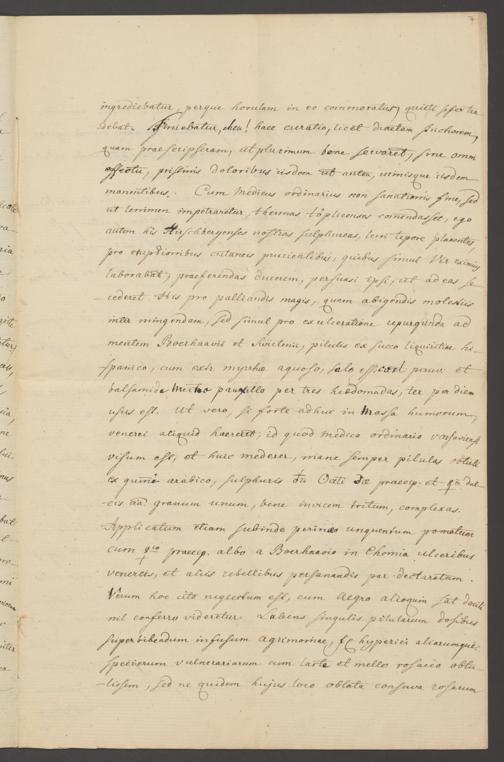 7
ingrediebatur, perque horulam in eo commoratus, quieti se
debat. Finiebatur, eheu! haec curatio, licet diaetam strictiorem,
quam praescripseram, ut plurimum bene servaret, sine omni
effectu, pristinis doloribus iisdem ut antea, urinisque iisdem
manentibus. Cum Medicus ordinarius non sanationis fine, sed
ut lenimen impetraretur, thermas töplicenses comendasset, ego
autem his Hirschbergenses nostras sulphureas, leni tepore placentes,
pro eruptionibus cutaneis prurientibus, quibus simul Vir eximius
laborabat, praeferendas ducerem, persuasi ipsi, ut ad eas se
cederet. His pro palliandis magis, quam abigendis molestiis
inter mingendum, sed simul pro exulceratione repurganda ad
mentem Boerhaavii et Swietenii, pilulis ex succo liquiritiae hi-
spanico, cum myrrhae aquoso, peruv. et
balsamide pauxillo per tres hebdomadas, ter per diem
usus est. Ut vero, si forte adhuc in Massa humorum,
venerei aliquid haereret, id quod medico ordinario
visum est, et huic mederer, mane semper pilulas obtuli
ex gummi arabico, sulphuris praecip. et dul-
cis granum unum, bene invicem tritum, complexas.
Applicatum etiam subinde perinaeo unguentum pomatum
cum praecip. albo a Boerhaavio in Chemia ulceribus
venereis, et aliis rebellibus persanandis par declaratum.
Verum hoc cito neglectum est, cum Aegro alioquin sat docili
nil conferre videretur. Labens singulis pilularum dosibus
superbibendum infusum agrimoniae, hyperici aliarumque
specierum vulnerariarum cum lacte et melle rosaceo obtu-
lissem, sed ne quidem hujus loco oblata conserva rosarum